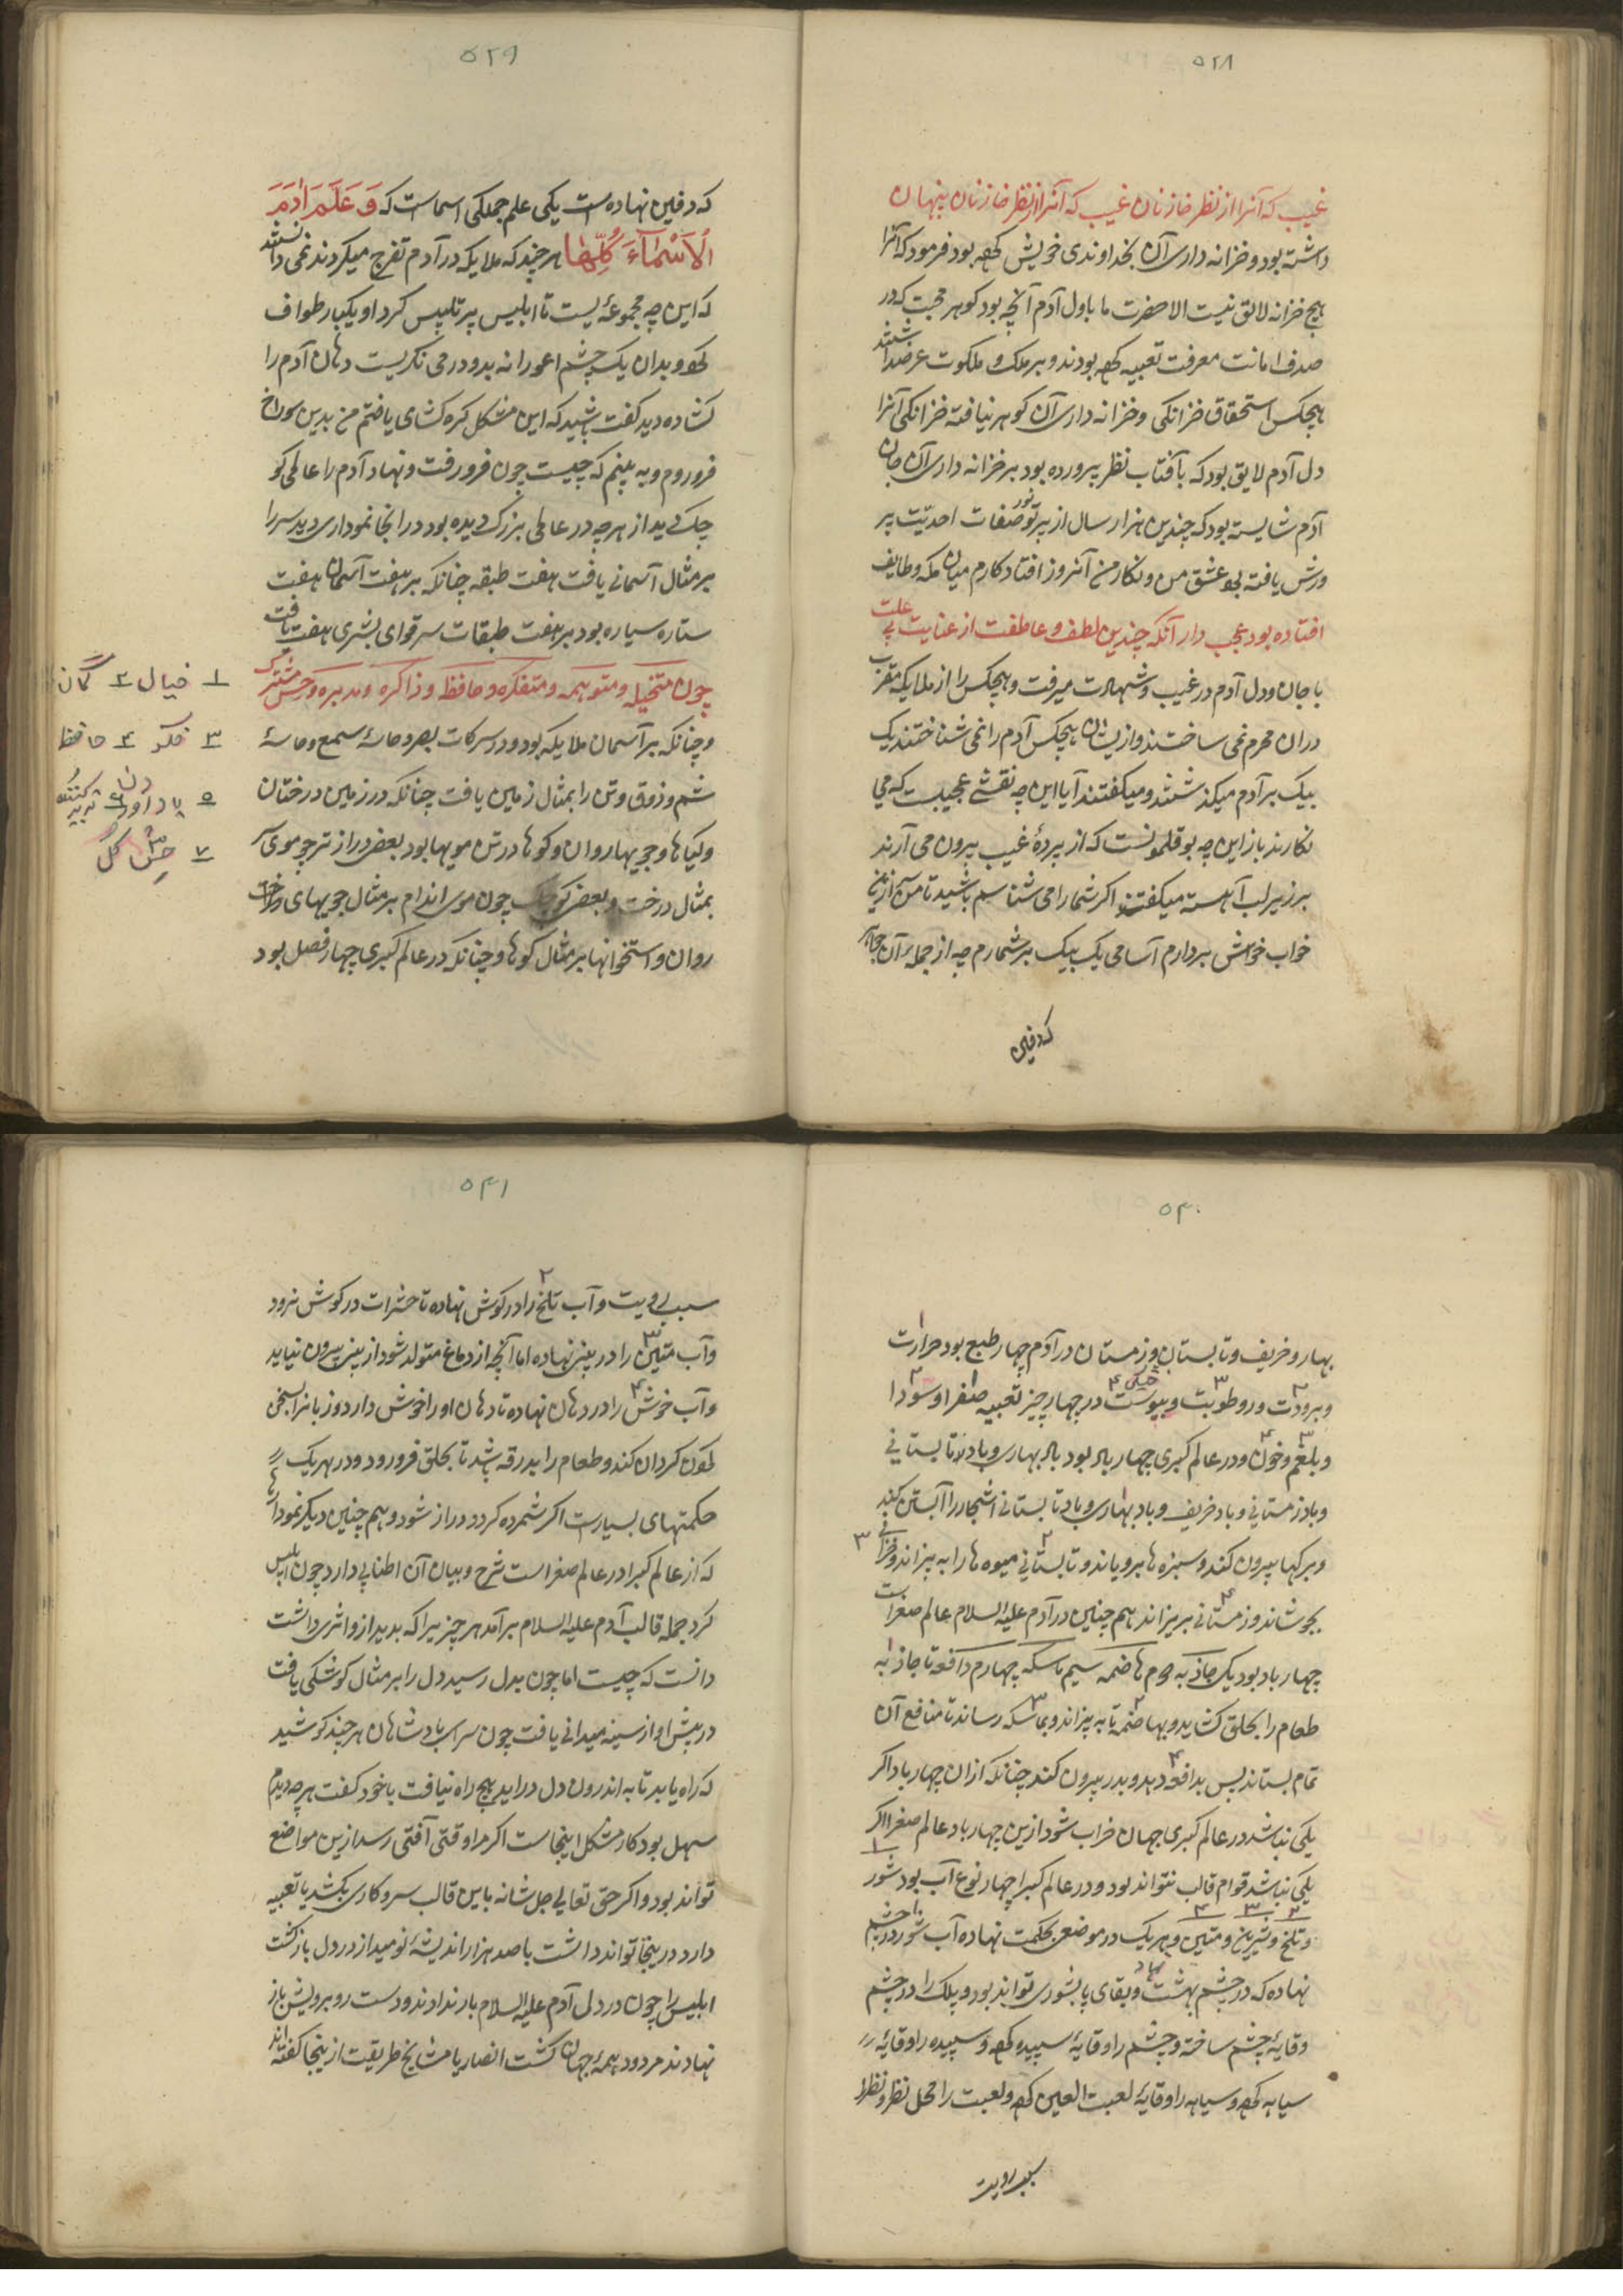 ۵۲۸
غیب که آنرا از نظر خازنان غیب که آنرا از نظر خازنان پنهان
داشته بود و خزانه داری آن بخداوندی خویش کرده بود فرمود که آنرا
هیچ خزانه لائق نیست الا حضرت ما یا ول آدم آنچه بود کوهر محبت که در
صدف امانت معرفت تعبیه کرده بودند و بر ملک و ملکوت عرضه داشتند
هیچکس استحقاق خزانکی و خزانه داری آن کوهر نیافته خزانکی آنرا
دل آدم لایق بود که بآفتاب نظر پرورده بود بر خزانه داری آن جان
آدم شایسته بود که چندین هزار سال از پرتو نور صفات احدیت پر
ورش یافته بود عشق من و نکار من آنروز افتاد کارم میان مکه و طایف
افتاده بود عجب دار آنکه چندین لطف و عاطفت از عنایت بی علت
با جان و دل آدم در غیب و شهادت میرفت و هیچکس را از ملایکه مقرب
دران محرم نمی ساختند و از یشان هیچکس آدم را نمی شناختند یک
بیک بر آدم میکذشتند و میکفتند آیا این چه نقشی عجیبست که می
نکارند باز این چه بوقلمونست که از پردهٔ غیب بیرون می آرند
بر زیر لب آهسته میکفتند اکر شما را می شناسم باشید تا من ازین
خواب خوش بردارم آسامی یک بیک بر شمارم چه از جمله آن جواهر
که دفین
۵۲۹
که دفین نهاده است یکی علم جملکی اسماست که وَ عَلَّمَ اٰدَمَ
الْاَسْمَآءَ کُلَّهَا هر چند که ملایکه در آدم تفرج میکردند نمی دانستند
که این چه مجموعهٔ یست تا ابلیس پر تلبیس کرد او یکبار طواف
کرد و بدان یک چشم اعورانه بدو در می نکریست دهان آدم را
کشاده دید کفت باشید که این مشکل کره کشای یافتم من بدین سوراخ
فرو روم و به بینم که چیست چون فرو رفت و نهاد آدم را عالمی کو
چک دید از هر چه در عالمی بزرک دیده بود در انجا نموداری دید سر را
بر مثال آسمانی یافت هفت طبقه چنانکه بر هفت آسمان هفت
ستاره سیاره بود بر هفت طبقات سر قوای بشری هفت یافت
چون متخیله و متوهمه و متفکره و حافظه و ذاکره و مدبره و حس مشترک
و چنانکه بر آسمان ملایکه بود و در سر کات بصر و حاسهٔ سمع و حاسهٔ
شم و ذوق و تن را بمثال زمین یافت چنانکه در زمین درختان
و کیاها و جویهاء روان و کوها در تن مویها بود بعضی دراز تر چو موی سر
بمثال درخت و بعضی کوچک چون موی اندام بر مثال جویهای درخت
روان و استخوانها بر مثال کوها و چنانکه در عالم کبری چهار فصل بود
۱ خیال ۲ کمان
۳ فکر ۴ حافظ
۵ یاد آوردن ۶ تدبیر کننده
۷ حس کل
۵۴۰
بهار و خریف و تابستان و زمستان در آدم چهار طبع بود حرارت
و برودت و رطوبت و یبوست در چهار چیز تعبیه صفرا و سودا
خشکی
و بلغم و خون و در عالم کبری چهار باد بود باد بهاری و باد تابستانی
و باد زمستانی و باد خریف و باد بهاری و باد تابستانی اشجار را آبستن کند
و برکها بیرون کند و سبزه ها برویاند و تابستانی میوه ها را به پزاند و خزانی
بجوشاند و زمستانی بریزاند هم چنین در آدم علیه السلام عالم صغراست
چهار باد بود یکی جاذبه دوم هاضمه سیم ماسکه چهارم دافعه تا جاذبه
طعام را بحلق کشاید و بهاضمه تا به پزاند و بماسکه رساند تا منافع آن
تمام بستاند پس بدافعه دهد و بدر بیرون کند چنانکه ازان چهار باد اکر
یکی نباشد در عالم کبری جهان خراب شود ازین چهار باد عالم صغرا اکر
یکی نباشد قوام قالب نتواند بود و در عالم کبرا چهار نوع آب بود شور
و تلخ و شیرین و منتن و هر یک در موضعی بحکمت نهاده آب شور در چشم
نهاده که در چشم بهشت و بقای پا بشوری تواند بود و پلک را در چشم
وقایهٔ چشم ساخته و چشم را وقایهٔ سپیده کرده و سپیده را وقایهٔ
سیاهه کرده و سیاهه را وقایهٔ لعبت العین کرده و لعبت را محل نظر و نظر را
سبب رویت
۵۴۱
سبب رویت و آب تلخ را در کوش نهاده تا حشرات در کوش نرود
و آب منتن را در بینی نهاده اما آنچه از دماغ متولد شود از بینی بیرون نیاید
و آب خوش را در دهان نهاده تا دهان او را خوش دارد و زبانرا بسخن
کردان کند و طعام را بدرقه باشد تا بحلق فرو رود و در هر یک
حکمتهای بسیارست اکر شمرده کردد دراز شود و هم چنین دیکر نمودارها
که از عالم کبرا در عالم صغراست شرح و بیان آن اطنابی دارد چون ابلیس
کرد جمله قالب آدم علیه السلام بر آمد هر چیزیرا که بدید ازو اثری داشت
دانست که چیست اما چون بدل رسید دل را بر مثال کوشکی یافت
در پیش او از سینه میدانی یافت چون سرای پادشاهان هر چند کوشید
که راه یابد تا به اندرون دل در اید هیچ راه نیافت با خود کفت هر چه دیدم
سهل بود کار مشکل اینجاست اکر مرا وقتی آفتی رسد ازین مواضع
تواند بود و اکر حق تعالی جل شانه باین قالب سر و کاری بکشد یا تعبیه
دارد درینجا تواند داشت با صد هزار اندیشهٔ نومید از در دل بازکشت
ابلیس را چون در دل آدم علیه السلام بار ندادند و دست رو بر ویش باز
نهادند مردود همهٔ جهان کشت انصار یا مشایخ طریقت از ینجا کفته اند